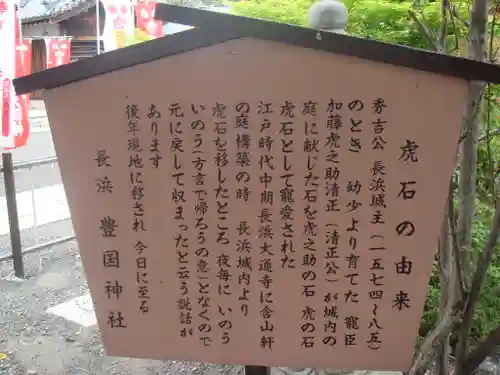 虎石の由来
秀吉公 長浜城主(一五七四～八五)
のとき 幼少より育てた 寵臣
加藤虎之助清正(清正公)が城内の
庭に献じた石を虎之助の石 虎の石
虎石として寵愛された
江戸時代中期長浜大通寺に含山軒
の庭構築の時 長浜城内より
虎石を移したところ 夜毎に いのう
いのう(方言で帰ろうの意)となくので
元に戻して収まったと云う説話が
あります
後年現地に移され 今日に至る
長浜 豊国神社